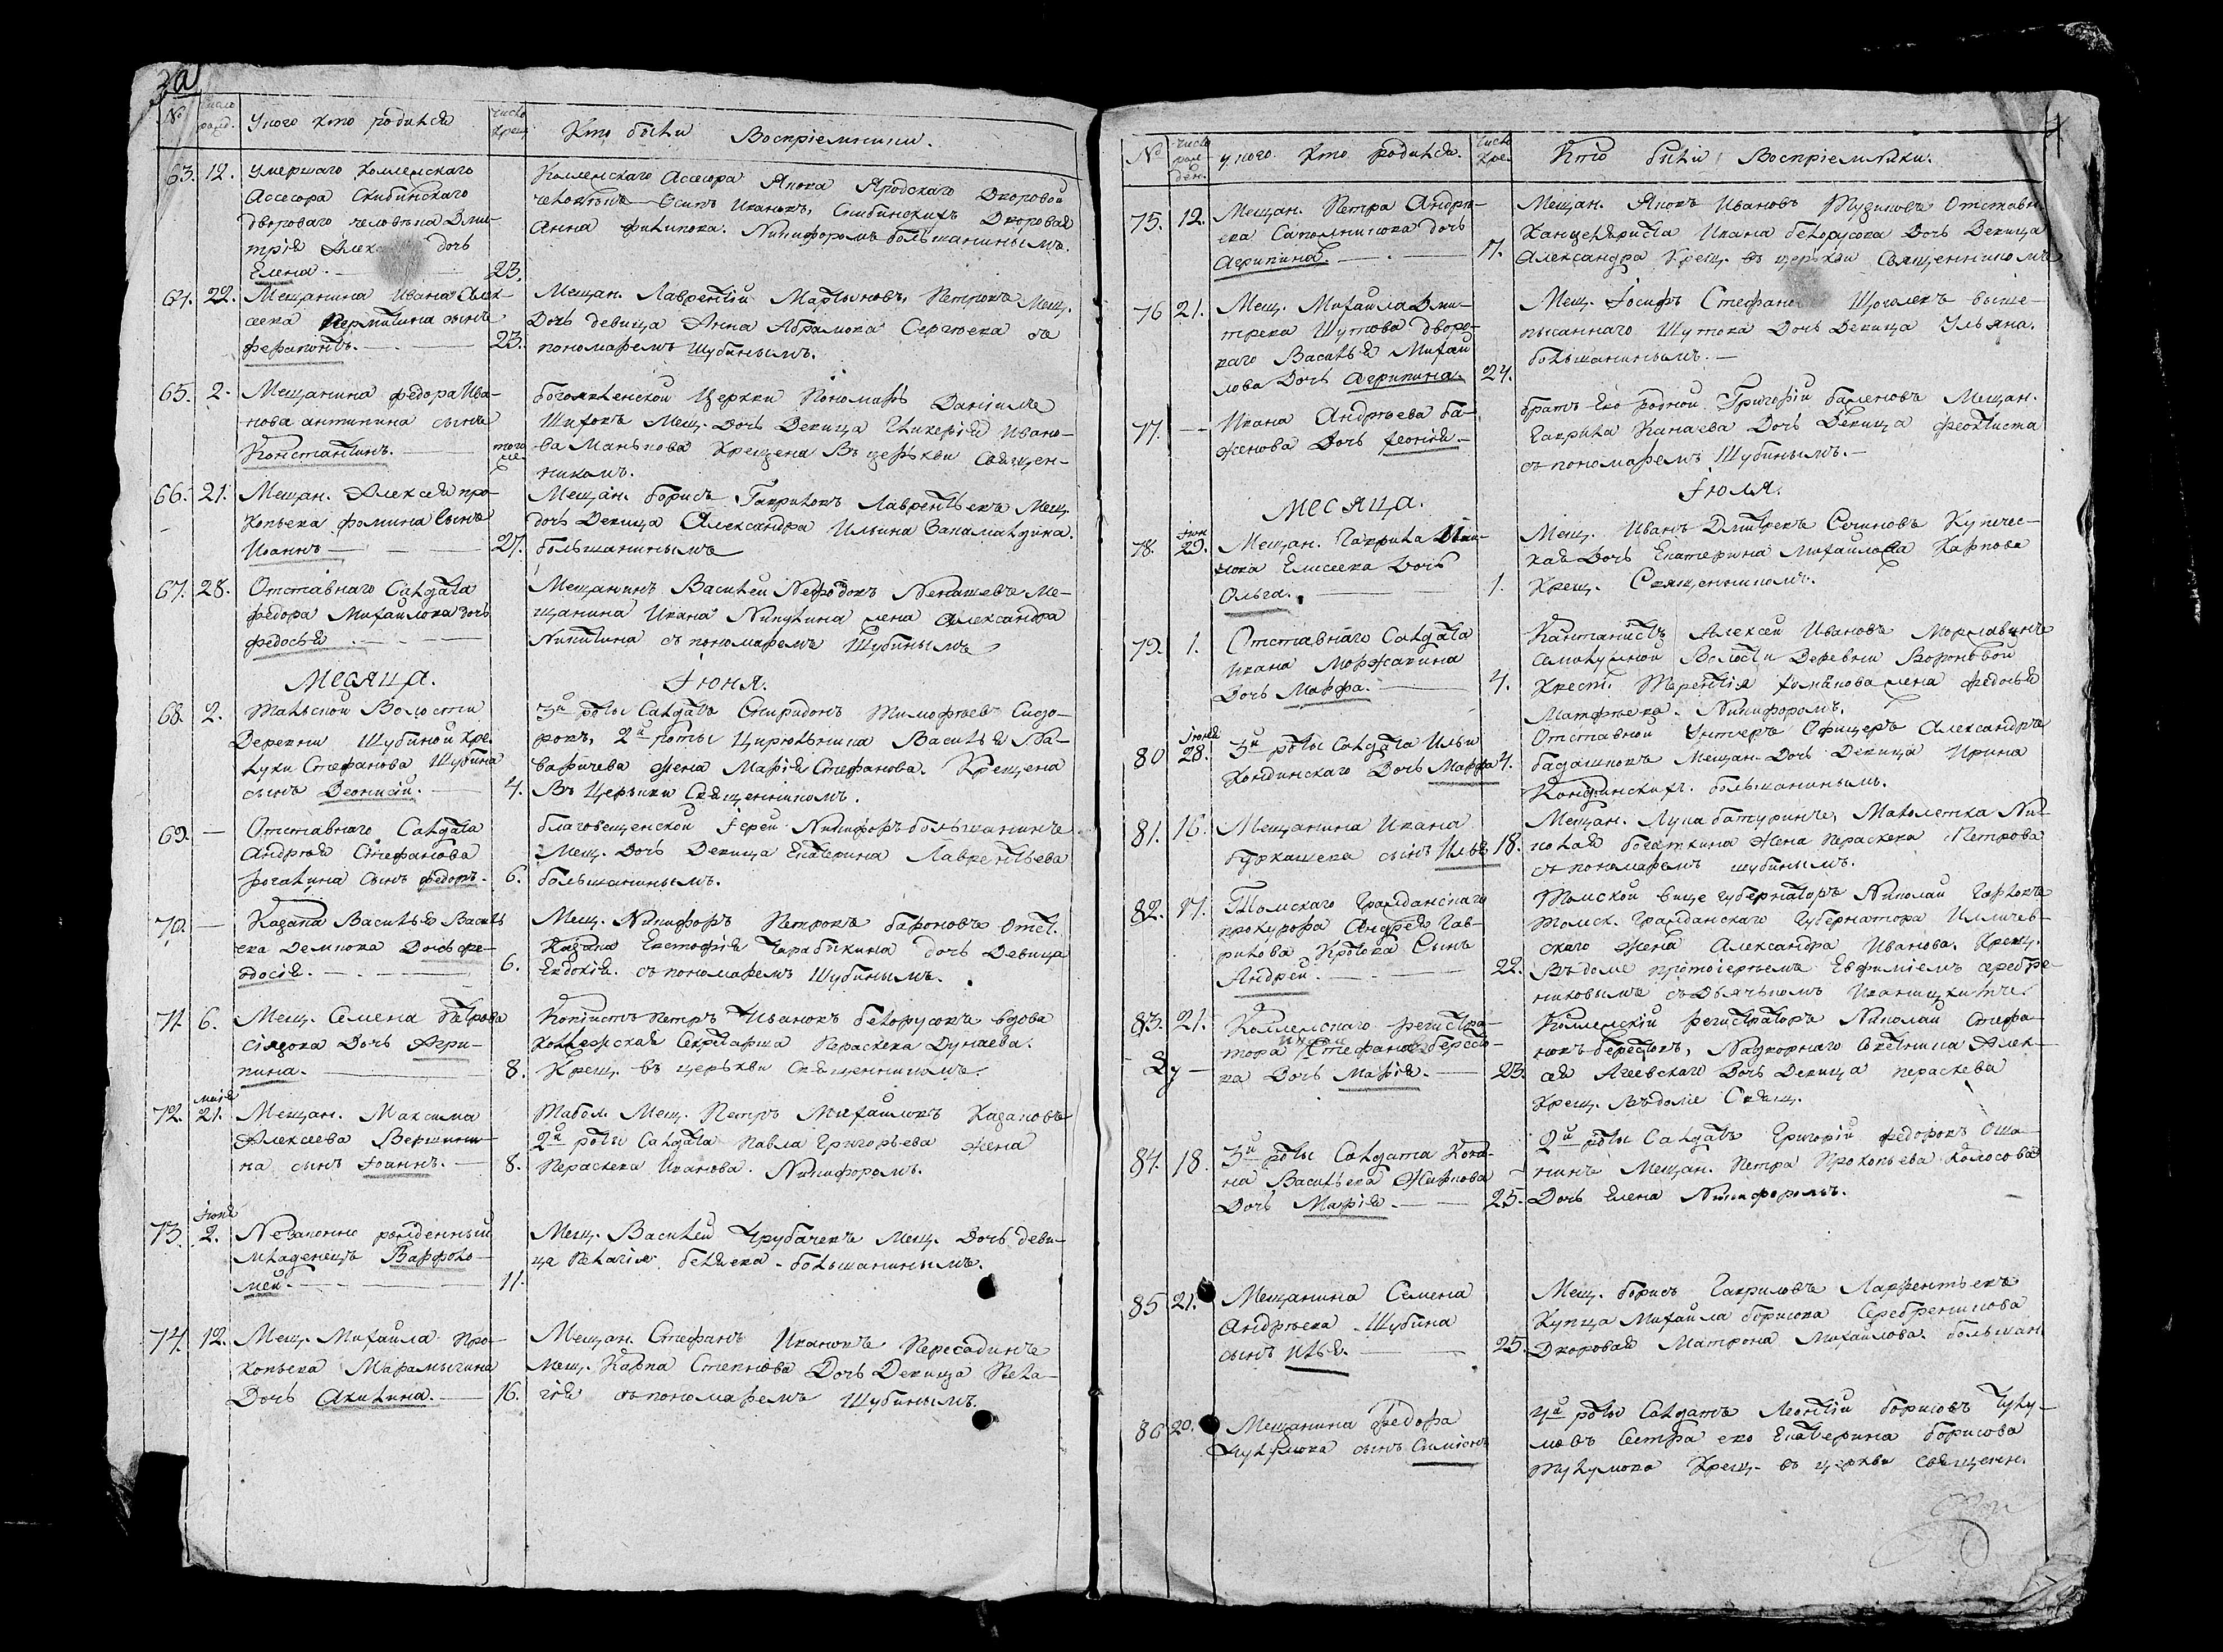 За
№
Число рожд.
У кого кто родился
Число крещ.
Кто были Воспріемники.
63. 12.
Умершаго Коллежскаго
Ассесора Скибинскаго
двороваго человѣка Дми-
трія Алек дочь
Елена.
23.
Коллежскаго Ассесора Якова Яродскаго Дворовой
человѣкъ Осипъ Ивановъ, Скибинскихъ Дворовая
Анна Филипова. Никифоромъ большанинымъ.
64. 22.
Мещанина Ивана Алек-
сеева Пермитина сынъ
Ферапонтъ.
23.
Мещан. Лаврентій Мартыновъ Петровъ Мещ.
Дочь девица Анна Абрамова Сергѣева съ
пономаремъ Шубинымъ.
65. 2.
Мещанина Федора Ива-
нова антипина сынъ
Константинъ.
того же
богоявленской Церкви Пономарь Даніилъ
Шифовъ Мещ. Дочь Девица Гликерія Ивано-
ва Манькова Крещена Въ церькви Священ-
никомъ.
66. 21.
Мещан. Алексея Про-
копьева фомина Сынъ
Иоаннъ
27.
Мещан. борисъ Гавриловъ Лаврентьевъ Мещ.
дочь Девица Александра Ильина Запамалдина.
большанинымъ
67. 28.
Отставнаго Салдата
Федора Михайлова дочь
федосья
Мещанинъ Василей Нефодовъ Ненашевъ Ме-
щанина Ивана Никулина жена Александра
Никитина съ пономаремъ Шубинымъ
Месяца. Іюня.
68. 2.
Тальской Волости
Деревни Шубиной Кре.
Луки Стефанова Шубина
сынъ Деонисій.
4.
3й роты Салдатъ Спиридонъ Тимофѣевъ Сидо-
ровъ, 2й роты Цирюльника Василья На-
варичева жена Марія Стефанова. Крещена
Въ Церькви Священникомъ.
69. —
Отставнаго Салдата
Андрѣя Стефанова
рогалина Сынъ федоръ.
6.
благовещенской Іерей Никифоръ большанинъ
Мещ. Дочь Девица Екатерина Лаврентьева
большанинымъ.
70. —
Казака Василья Василь
ева Демкова Дочь фе-
одосія.
6.
Мещ. Никифоръ Петровъ бароновъ Отст.
Казака Евстафія Чарабыкина дочь Девица
Евдокія. съ пономаремъ Шубинымъ.
71. 6.
Мещ. Семена Петрова
Сіязова Дочь Агри-
пина.
8.
Копіистъ Петръ Ивановъ белорусовъ вдова
Коллежская Секретарша Параскева Дунаева.
Крещ. въ церькви Священникомъ.
72. Майя 21.
Мещан. Максима
Алексеева Вершини-
на сынъ Іоаннъ.
8.
Тобол. Мещ. Петръ Михайловъ Казановъ
2й роты Салдата Павла Григорьева жена
Параскева Иванова. Никифоромъ.
73. Іюня 2.
Незаконно рожденный
Младенецъ Варфоло-
мей.
11.
Мещ. Василей Трубачевъ Мещ. Дочь деви-
ца Пелагія беляева. большанинымъ.
74. 12.
Мещ. Михайла Про-
копьева Марамыгина
Дочь Акилина.
16.
Мещан. Стефанъ Ивановъ Пересадинъ
Мещ. Карпа Степнова Дочь Девица Пела-
гія съ пономаремъ Шубинымъ.
№
Число рож ден.
у ково кто родился.
Число Кре.
Кто были Воспріемники.
75. 12.
Мещан. Петра Андрѣ-
ева Сапожникова дочь
Агрипина.
17.
Мещан. Яковъ Ивановъ Тузиковъ Отставн
Канцеляриста Ивана белорусова Дочь Девица
Александра Крещ. въ церькви Священникомъ
76 21.
Мещ. Михайла Дми-
трева Шутова дворо-
ваго Василья Михай
лова Дочь Агрипина.
24.
Мещ. Іосифъ Стефанов Щоголевъ выше-
писаннаго Шутова Дочь Девица Ульяна.
большанинымъ.
77. —
Ивана Андрѣева ба-
женова Дочь Леонія.
братъ Ево родной Григорій баженовъ Мещан.
Гаврила Канаева Дочь Девица Феоктиста
съ пономаремъ Шубинымъ.
Месяца. Іюля.
78. Іюн 29.
Мещан. Гаврила
Елисеева Дочь
Ольга.
1.
Мещ. Иванъ Дмитревъ Сочиновъ Купечес-
кая Дочь Екатерина Михайлова Карпова
Крещ. Священникомъ.
79. 1.
Отставнаго Салдата
Ивана Моржакина
Дочь Марфа.
4.
Кантанистъ Алексей Ивановъ
Семилужной Волости Деревни Вороновой
Крест. Терентія жена Федосья
Матфѣева. Никифоромъ.
80 Іюня 28.
3й роты Салдата Ильи
Кондинскаго Дочь Марфа
4.
Отставной Унтеръ Офицеръ Александръ
бадашковъ Мещан. Дочь Девица Ирина
Кондинскихъ. большанинымъ.
81. 16.
Мещанина Ивана
буркашева сынъ Илья
18.
Мещан. Лука батуринъ, Малолетка Ни-
колая богаткина Жена Параскева Петрова
съ пономаремъ шубинымъ.
82. 17.
Томскаго Гражданскаго
прокурора Андрея Гав-
рилова Кротова Сынъ
Андрей.
22.
Томской вице губернаторъ Николай Горловъ
Томск. Гражданскаго Губернатора Илличев-
скаго жена Александра Иванова. Крещ.
Въ доме протоіереемъ Евфиміемъ серебре-
никовымъ съ Дьячькомъ Иваницкимъ.
83. 21.
Коллежскаго регистра-
тора Стефанова бересто-
ва Дочь Марія.
23.
Коллежскій регистраторъ Николай Стефа-
новъ берестовъ, Надворнаго Советника Алек-
сея Агеевскаго Дочь Девица параскева
Крещ. Въ доме Свящ.
84. 18.
3й роты Салдата Кона-
на Васильева Жирнова
Дочь Марія.
25.
2й роты Салдатъ Григорій Федоровъ Оша-
нинъ Мещан. Петра Прокопьева Колосова
Дочь Елена Никифоромъ.
85 21.
Мещанина Семена
Андрѣева Шубина
сынъ Илья.
25.
Мещ. борисъ Гавриловъ Лаврентьевъ
Купца Михайла борисова Серебреникова
Дворовая Матрона Михайлова. большан
86 20.
Мещанина Федора
Чукумова сынъ Симіонъ
4й роты Салдатъ Леонтій борисовъ Чуку-
мовъ Сестра ево Екатерина борисова
Чукумова Крещ. въ церкви священн.